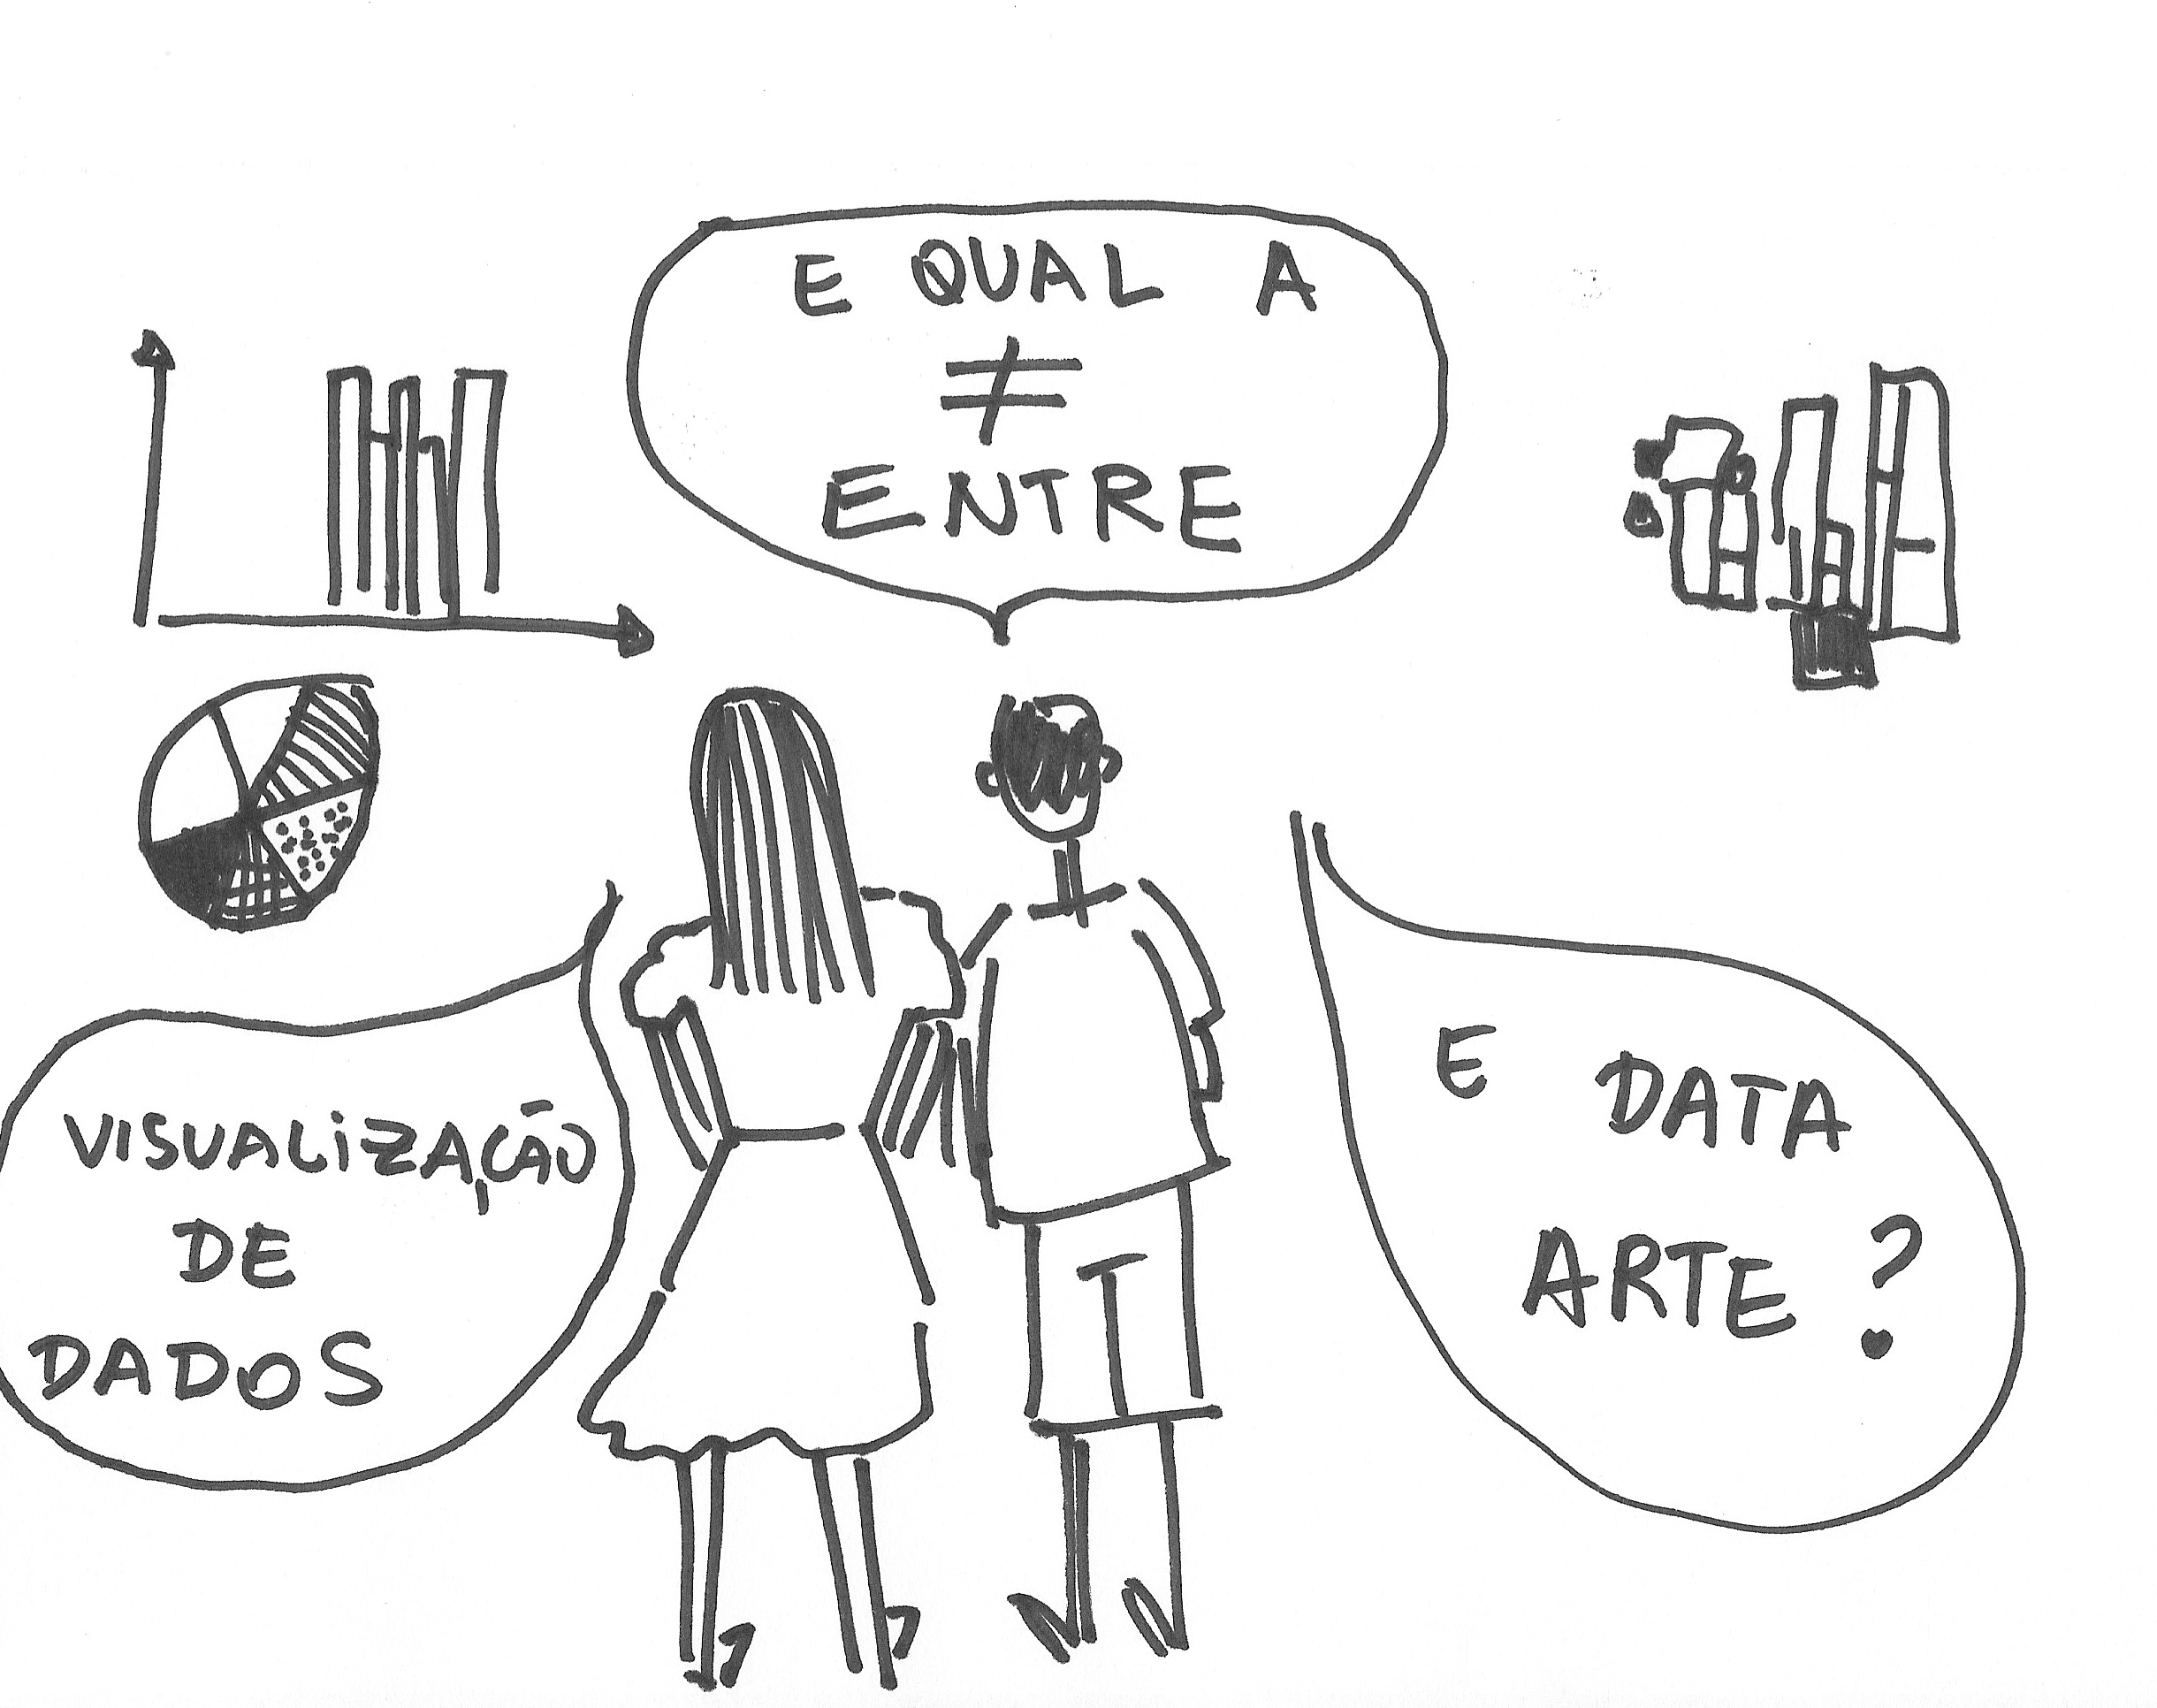 E QUAL A
≠
ENTRE
VISUALIZAÇÃO
DE
DADOS
E DATA
ARTE?